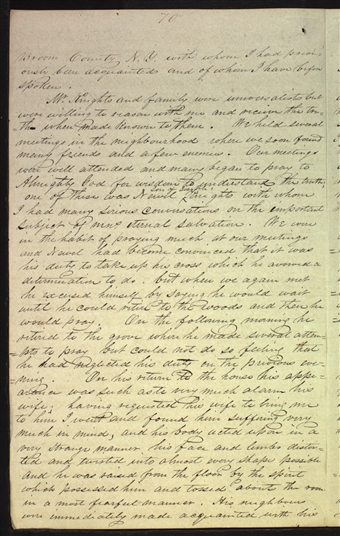 70
Broom County, N.Y. with whom I had previ-
ously been acquainted and of whom I have before
spoken.
Mr. Knights and family were universalists but
were willing to reason with me and receive the tru
th when made known to them. We held several
meetings in the neighbourhood when we soon found
many friends and a few enemies. Our meetings
were well attended and many began to pray to
Almighty God for wisdom to understand the truth;
one of these was Newel Knights with whom
I had many serious conversations on the important
subject of mens eternal salvation. We were
in the habit of praying much at our meetings
and Newel had become convinced that it was
his duty to take up his cross which he avowed a
determination to do. but when we again met
he excused himself by saying he would wait
until he could retire to the woods and then he
would pray. On the following morning he
retired to the grove when he made several attem-
pts to pray but could not do so feeling that
he had neglected his duty on the previous eve-
ning. On his return to the house his appe-
arance was such as to very much alarm his
wife; having requested his wife to bring me
to him I went and found him suffering very
much in mind, and his body acted upon in a
very strange manner his face and limbs distor-
ted and twisted into almost every shape possible
and he was raised from the floor by the spirit
which possessed him and tossed about the room
in a most fearful manner. His neighbours
were immediately made acquainted with his